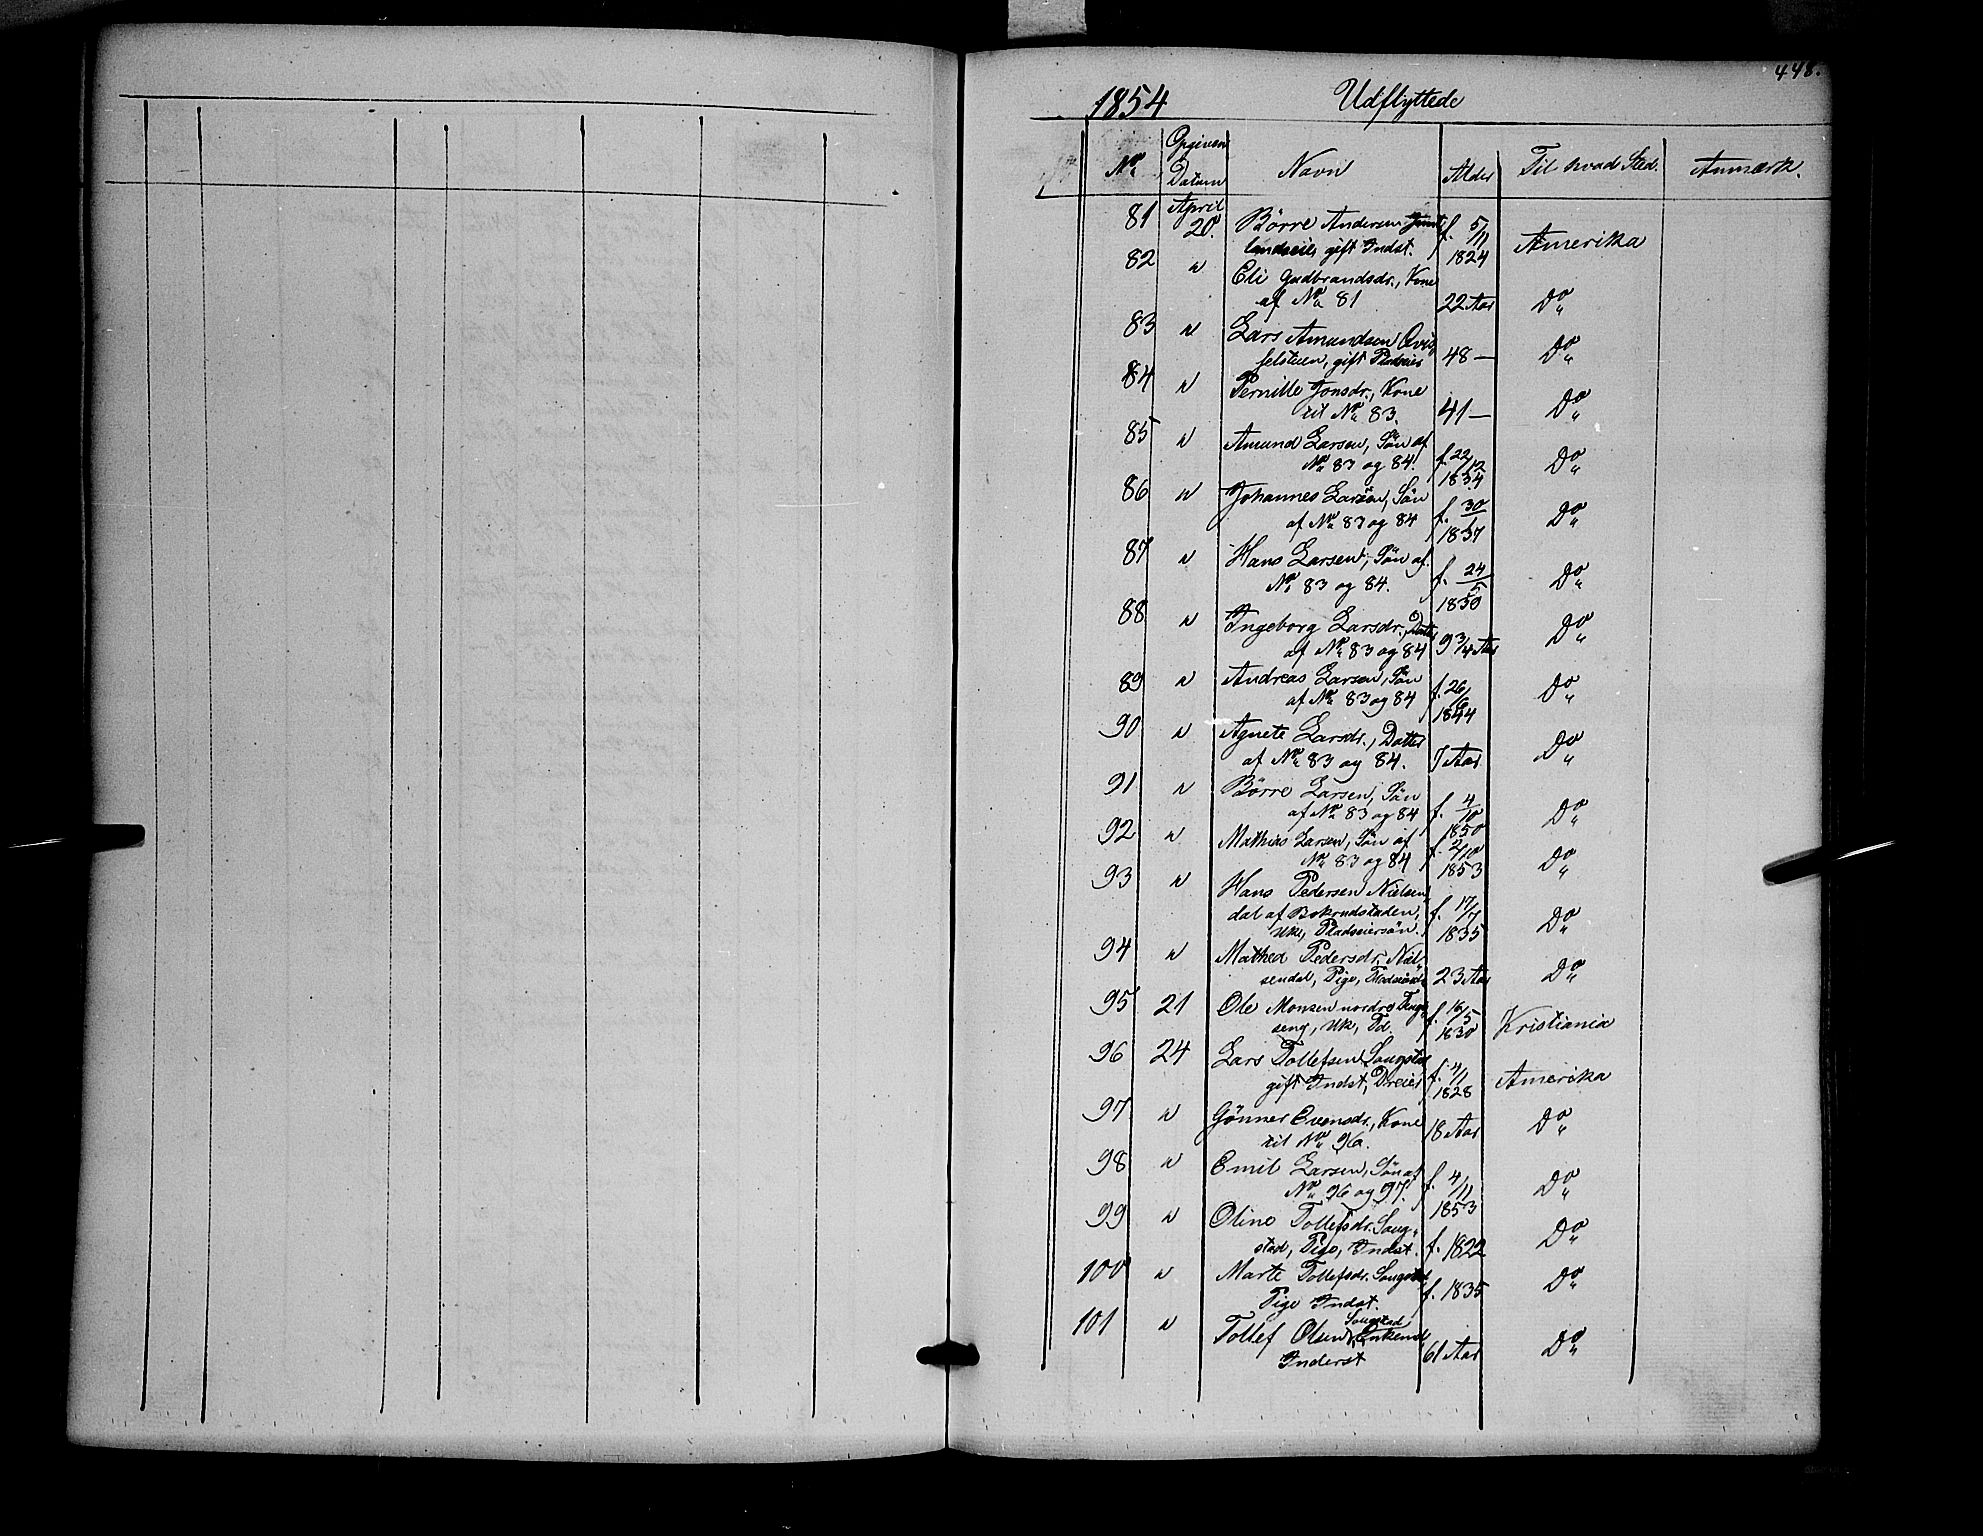 448.
1854 Udflyttede
No Opgivens Datum Navn Alder Til hvad Sted. Anmærk.
81 April 20. Börre Andersen f. 5/11
landseie, gift Indst. 1824 Amerika
82 " Eli Gudbrandsdr., Kone
af No 81 22 Aar Do
83 " Lars Amundsen Qvis
felsteen, gift Pladseier 48 — Do
84 " Pernille Jonsdr., Kone
til No 83. 41 — Do
85 " Amund Larsen, Sön af
No 83 og 84. f. 22/12 1834 Do
86 " Johannes Larsen, Sön
af No 83 og 84 f. 30/1 1837 Do
87 " Hans Larsen, Sön af
No 83 og 84. f. 24/5 1850 Do
88 " Ingeborg Larsdr., Datter
af No 83 og 84 9 3/4 Aar Do
89 " Andreas Larsen, Sön
af No 83 og 84 f. 26/6 1844 Do
90 " Agnete Larsdr., Datter
af No 83 og 84. 7 Aar Do
91 " Börre Larsen, Sön
af No 83 og 84 f. 4/10 1850 Do
92 " Mathias Larsen, Sön af
No 83 og 84 f. 2/10 1853 Do
93 " Hans Pedersen Nielsen
dal af Bokrudstaden,
Uk, Pladseiersön. f. 17/7 1835 Do
94 " Mathea Pedersdr. Niel
sendal, Pige, 23 Aar Do
95 21 Ole Monsen nordre
seng, Uk, Td. f. 16/5 1830 Kristiania
96 24 Lars Tollefsen Saugstad
gift Indst, Dreier f. 4/1 1828 Amerika
97 " Gönner Evensdr., Kone
til No 96. 18 Aar Do
98 " Emil Larsen, Sön af
No 96 og 97. f. 4/11 1853 Do
99 " Oline Tollefsdr. Saug-
stad, Pige, Indst. f. 1822 Do
100 " Marte Tollefsdr. Saugstad
Pige Indst. f. 1835 Do
101 " Tollef Olsen Saugstad, Enkemd
Inderst 61 Aar Do